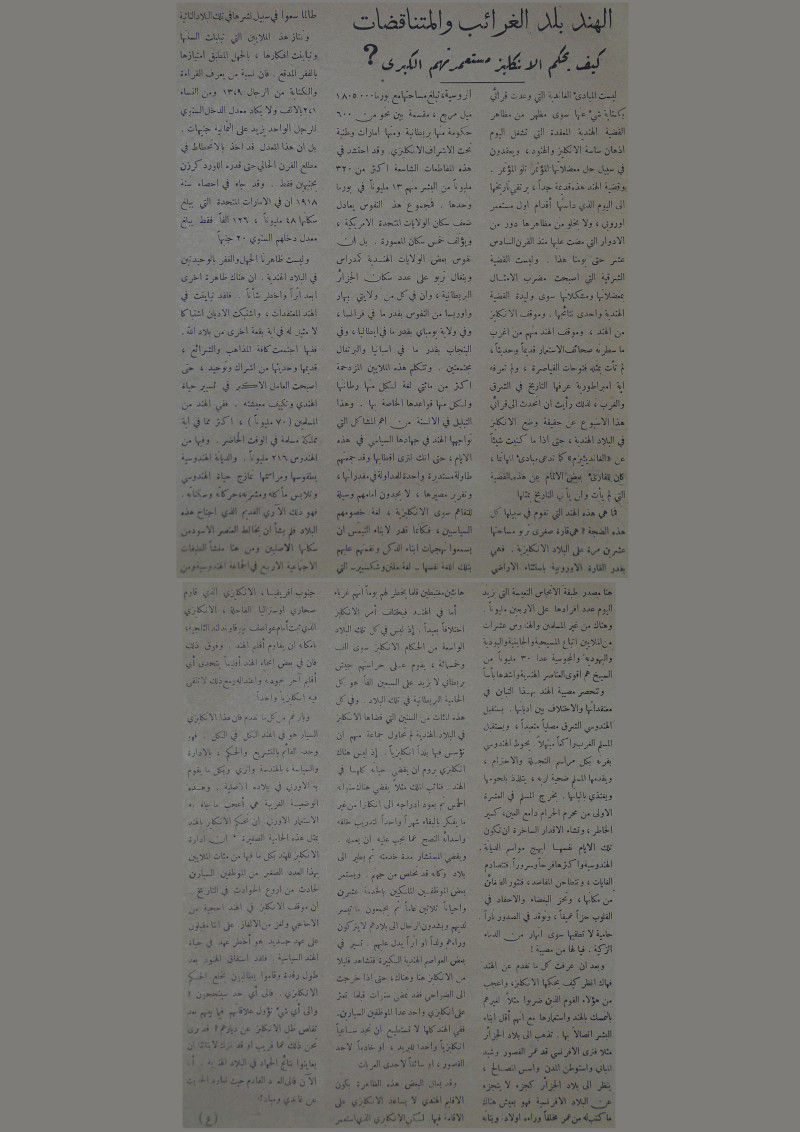 الهند بلد الغرائب والمتناقضات
كيف يحكم الانكليز مستعمرتهم الكبرى؟
ليست المبادئ الغاندية التي وعدت قرائي
بكتابة شيء عنها سوى مظهر من مظاهر
القضية الهندية المعقدة التي تشغل اليوم
اذهان ساسة الانكليز والهنود، ويعقدون
في سبيل حل معضلاتها المؤتمر تلو المؤتمر.
وقضية الهند هذه قديمة جداً، يرتقي تاريخها
الى اليوم الذي داستها أقدام اول مستعمر
اوروبي، ولا يخلو من مظاهرها دور من
الادوار التي مضت عليها منذ القرن السادس
عشر حتى يومنا هذا. وليست القضية
الشرقية التي اصبحت مضرب الامثال
بمعضلاتها ومشكلاتها سوى وليدة القضية
الهندية واحدى نتائجها. وموقف الانكليز
من الهند، وموقف الهند منهم من اغرب
ما سطرته صحائف الاستعمار قديماً وحديثاً،
لم تأت بمثله فتوحات القياصرة، ولم تعرفه
اية امبراطورية عرفها التاريخ في الشرق
والغرب، لذلك رأيت ان اتحدث الى قرائي
هذا الاسبوع عن حقيقة وضع الانكليز
في البلاد الهندية، حتى اذا ما كتبت شيئاً
عن «الغانديئيزم» كما تدعى مبادئ المهاتما،
كان للقارئ بعض الالمام عن هذه القضية
التي لم يأت ولن يأتي التاريخ بمثلها
فما هي هذه الهند التي تقوم في سبيلها كل
هذه الضجة؟ هي قارة صغرى تربو مساحتها
عشرين مرة على البلاد الانكليزية. فهي
بقدر القارة الاوروبية باستثناء الاراضي
الروسية، تبلغ مساحتها مع بورما ١٨٠٥٠٠٠
ميل مربع، مقسمة بين نحو من ٦٠٠
حكومة منها بريطانية ومنها امارات وطنية
تحت الاشراف الانكليزي. وقد احتشد في
هذه المقاطعات الشاسعة اكثر من ٣٢٠
مليوناً من البشر منهم ١٣ مليوناً في بورما
وحدها. فمجموع هذا النفوس يعادل
ضعف سكان الولايات المتحدة الامريكية،
ويؤلف خمس سكان المعمورة. بل ان
نفوس بعض الولايات الهندية كمدراس
وبنغال تربو على عدد سكان الجزائر
البريطانية، وان في كل من ولايتي بهار
واوريسا من النفوس بقدر ما في فرانسا،
وفي ولاية بومباي بقدر ما في ايطاليا، وفي
البنجاب بقدر ما في اسبانيا والبرتغال
مجتمعتين. وتتكلم هذه الملايين المزدحمة
اكثر من مائتي لغة لكل منها رطانتها
ولكل منها قواعدها الخاصة بها. وهذا
التبلبل في الالسنة من اهم المشاكل التي
تواجهها الهند في جهادها السياسي في هذه
الايام، حتى انك لترى اقطابها وقد جمعتهم
طاولة مستديرة واحدة للمداولة في مقدراتها،
وتقرير مصيرها، لا يجدون امامهم وسيلة
للتفاهم سوى الانكليزية، لغة خصومهم
السياسيين، فكأنما قدر لابناء التيمس ان
يسمعوا تهجمات ابناء الدكن ونقمتهم عليهم
بتلك اللغة نفسها ـ لغة ملتن وشكسبير ـ التي
طالما سعوا في سبيل نشرها في تلك البلاد النائية
وتمتاز هذه الملايين التي تباينت السنتها
وتباينت افكارها، بالجهل المطبق امتيازها
بالفقر المدقع. فان نسبة من يعرف القراءة
والكتابة من الرجال ١٣٫٩ ومن النساء
٢٫١ بالالف ولا يكاد معدل الدخل السنوي
للرجل الواحد يزيد على الثمانية جنيهات.
بل ان هذا المعدل قد اخذ بالانحطاط في
مطلع القرن الحالي حتى قدره اللورد كرزن
بجنيهين فقط. وقد جاء في احصاء سنة
١٩١٨ ان في الامارات المتحدة التي يبلغ
سكانها ٤٨ مليوناً، ١٢٦ الفاً فقط يبلغ
معدل دخلهم السنوي ٢٠ جنيهاً
وليست ظاهرتا الجهل والفقر بالوحيدتين
في البلاد الهندية. ان هناك ظاهرة اخرى
ابعد اثراً واخطر شأناً. فلقد تباينت في
الهند المعتقدات، واشتبكت الاديان اشتباكا
لا مثيل له في اية بقعة اخرى من بلاد الله.
ففيها اجتمعت كافة المذاهب والشرائع،
قديمها وحديثها من اشراك وتوحيد، حتى
اصبحت العامل الاكبر في تسيير حياة
الهندي وتكييف معيشته. ففي الهند من
المسلمين (٧٠ مليوناً)، اكثر مما في اية
مملكة مسلمة في الوقت الحاضر. وفيها من
الهندوس ٢١٦ مليوناً. والديانة الهندوسية
بطقوسها ومراسمها تمازج حياة الهندوسي
وتلابس مأكله ومشربه وحركاته وسكناته.
فهو ذلك الآري القديم الذي اجتاح هذه
البلاد فلم يشأ ان يخالط العنصر الاسود من
سكانها الاصليين ومن هنا منشأ الطبقات
الاجتماعية الاربع في الجماعة الهندوسية ومن
هنا مصدر طبقة الانجاس التعيسة التي تزيد
اليوم عدد افرادها على الاربعين مليوناً.
وهناك من غير المسلمين والهندوس عشرات
من الملايين اتباع المسيحية والجاينية والبوذية
واليهودية والمجوسية عدا ٣٠ مليوناً من
السيخ هم اقوى العناصر الهندية واشدها بأساً
وتنحصر مصيبة الهند بهذا التباين في
معتقداتها والاختلاف بين اديانها. يستقبل
الهندوسي الشرق مصلياً متعبداً، ويستقبل
المسلم الغرب راكعاً مبتهلا. يحوط الهندوسي
بقرته بكل مراسم التجلة والاحترام،
ويقدمها المسلم ضحية لربه، يتلذذ بلحومها
ويغتذي بالبانها. يخرج المسلم في العشرة
الاولى من محرم الحرام دامع العين، كسير
الخاطر، وتشاء الاقدار الساخرة ان تكون
تلك الايام نفسها ابهج مواسم الديانة
الهندوسية واكثرها فرحاً وسروراً. فتتصادم
الغايات، وتتطاحن المقاصد، فتثور الضغائن
من مكامنها، وتحز البغضاء والاحقاد في
القلوب حزاً عميقاً، وتوقد في الصدور ناراً
حامية لا تطفئها سوى انهار من الدماء
الزكية. فيا لها من مصيبة!
وبعد ان عرفت كل ما تقدم عن الهند
فهاك انظر كيف يحكمها الانكليز، واعجب
من هؤلاء القوم الذين ضربوا مثلا لغيرهم
بتمسك بالهند واستعمارها مع انهم أقل ابناء
البشر اتصالا بها. تذهب الى بلاد الجزائر
مثلا فترى الافرنسي قد عمر القصور وشيد
المباني واستوطن المدن واسس المصالح،
ينظر الى بلاد الجزائر كجزء لا يتجزء
عن البلاد الافرنسية فهو يعيش هناك
ما كتب له من عمر مخلفاً وراءه اولاده وبناته
هانئين مغتبطين قلما يخطر لهم يوماً انهم غرباء
أما في الهند فيختلف أمر الانكليز
اختلافاً بعيداً. إذ ليس في كل تلك البلاد
الواسعة من الحكام الانكليز سوى الف
وخمسمائة، يقوم على حراستهم جيش
بريطاني لا يزيد على السبعين الفاً هو كل
الحامية البريطانية في تلك البلاد. وفي كل
هذه المئات من السنين التي قضاها الانكليز
في البلاد الهندية لم تحاول جماعة منهم ان
تؤسس فيها بلداً انكليزياً. إذ ليس هناك
انكليزي يروم ان يقضي حياته كلها في
الهند. فنائب الملك مثلا يقضي هناك سنواته
الخمس ثم يعود ادراجه الى انكلترا من غير
ما يفكر بالبقاء شهراً واحداً لتدريب خلفه
واسداء النصح عما يجب عليه ان يعمله.
ويقضي المستشار مدة خدمته ثم يعابر الى
بلاده وكأنه قد تخلص من جهنم. ويستمر
بعض الموظفين الملكيين بالخدمة عشرين
واحياناً ثلاثين عاماً ثم يجمعون ما تيسر
لديهم ويشدون الرحال الى بلادهم لا يتركون
وراءهم ولداً او اثراً يدل عليهم. تسير في
بعض العواصم الهندية الكبيرة فتشاهد قليلا
من الانكليز هنا وهناك، حتى اذا خرجت
الى الضواحي فقد تمضي سنوات قبلما تعثر
على انكليزي واحد عدا الموظفين السيارين.
ففي الهند كلها لا تستطيع ان تجد ساعياً
انكليزياً واحدا للبريد، او خادما لاحد
القصور، او سائقاً لاحدى العربات
وقد يعلل البعض هذه الظاهرة بكون
الاقليم الهندي لا يساعد الانكليزي على
الاقامة فيها. لكن الانكليزي الذي استعمر
جنوب افريقيا، الانكليزي الذي قاوم
صحاري اوستراليا القاحلة، الانكليزي
الذي ثبت أمام عواصف نيوفاوندلند الثلجية،
بامكانه ان يقاوم أقليم الهند. وفوق ذلك
فان في بعض انحاء الهند أقليماً يتحدى أي
أقليم آخر بجودته واعتداله ومع ذلك لا تلقى
فيه انكليزياً واحداً.
وبالرغم من كل ما تقدم فان هذا الانكليزي
السيار هو في الهند الكل في الكل. فهو
وحده القائم بالتشريع والحكم، بالادارة
والسياسة، بالهندسة والري وبكل ما يقوم
به الاوربي في بلاده الاصلية. وهذه
الوضعية الغريبة هي أعجب ما جاء به
الاستعمار الاوربي. ان تحكم الانكليز بالهند
بمثل هذه الحامية الصغيرة، ان ادارة
الانكليز للهند بكل ما فيها من مئات الملايين
بهذا العدد الصغير من الموظفين السيارين
لحادث من اروع الحوادث في التاريخ.
ان موقف الانكليز في الهند احجية من
الاحاجي ولغز من الالغاز على اننا مقبلون
على عهد جديد هو أخطر عهد في حياة
الهند السياسية. فلقد استفاق الهنود بعد
طول رقدة وقاموا يطالبون بخلع الحكم
الانكليزي. فالى أي حد سينجحون؟
والى أي شيء تؤول علاقاتهم فيما بينهم بعد
تقلص ظل الانكليز عن ديارهم؟ قد نرى
نحن ذلك عما قريب او قد نترك لابنائنا ان
يعاينوا نتائج الجهاد في البلاد الهندية. أما
الآن فالى العدد القادم حيث نعاود الحديث
عن غاندي ومبادئه
(ع)